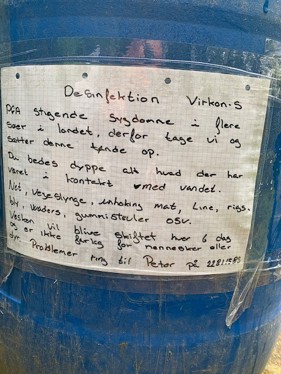 Desinfektion Virkon-S
PGA stigende sygdomme i flere
søer i landet, derfor tage vi og
sætter denne tønde op.
Du bedes dyppe alt hvad der har
været i kontakt med vandet.
Net, vejeslynge, unhoking mat, Line, rigs.
bly, waders, gummistøvler osv.
Vesken vil blive skiftet hver 6 dag
og er ikke farlig for mennesker eller
dyr. Problemer ring til Peter på